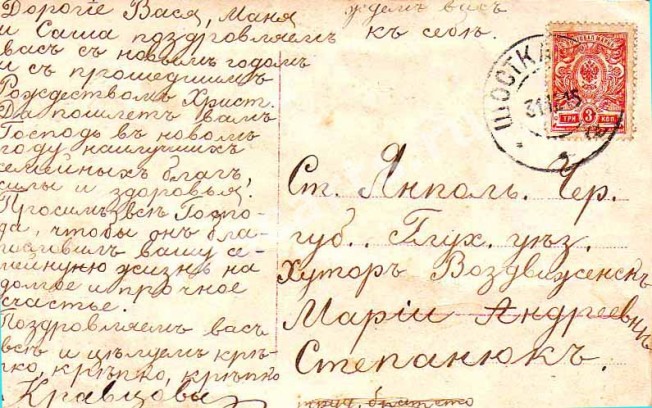 Дорогіе Вася, Маня
и Саша поздравляем
васъ съ новымъ годом
и съ прошедшимъ
Рождествомъ Христ.
Да пошлетъ вамъ
Господь въ новом
году наилучшихъ
семейныхъ благъ,
силы и здоровья!
Просимъ всѣ Госпо-
да, чтобы онъ бла-
гословилъ вашу се-
мейную жизнь на
долгое и прочное
счастье.
Поздравляемъ васъ
всѣ и цѣлуемъ крѣ-
пко, крѣпко, крѣпко
Кравцовы
ждемъ васъ
къ себѣ.
ШОСТКА
ТРИ 3 КОП
Ст. Янполь. Чер.
губ.. Глух. уѣз.
Хуторъ Воздвиженскъ
Маріи Андреевнѣ
Степанюкъ.